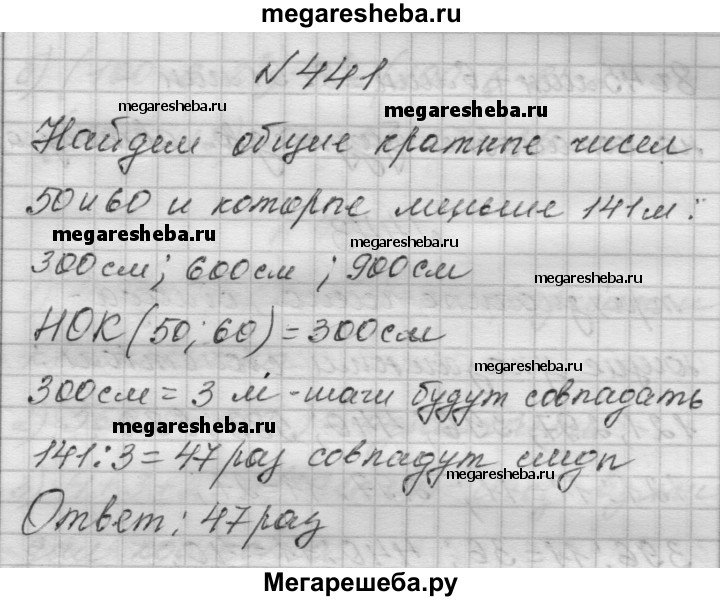 megaresheba.ru
№ 441
megaresheba.ru
megaresheba.ru
Найдем общие кратные чисел
50 и 60 и которые меньше 141 м:
megaresheba.ru
megaresheba.ru
300 см; 600 см; 900 см
megaresheba.ru
НОК (50; 60) = 300 см
megaresheba.ru
300 см = 3 м - шаги будут совпадать
megaresheba.ru
megaresheba.ru
141 : 3 = 47 раз совпадут следы
megaresheba.ru
Ответ: 47 раз
Мегарешеба.ру